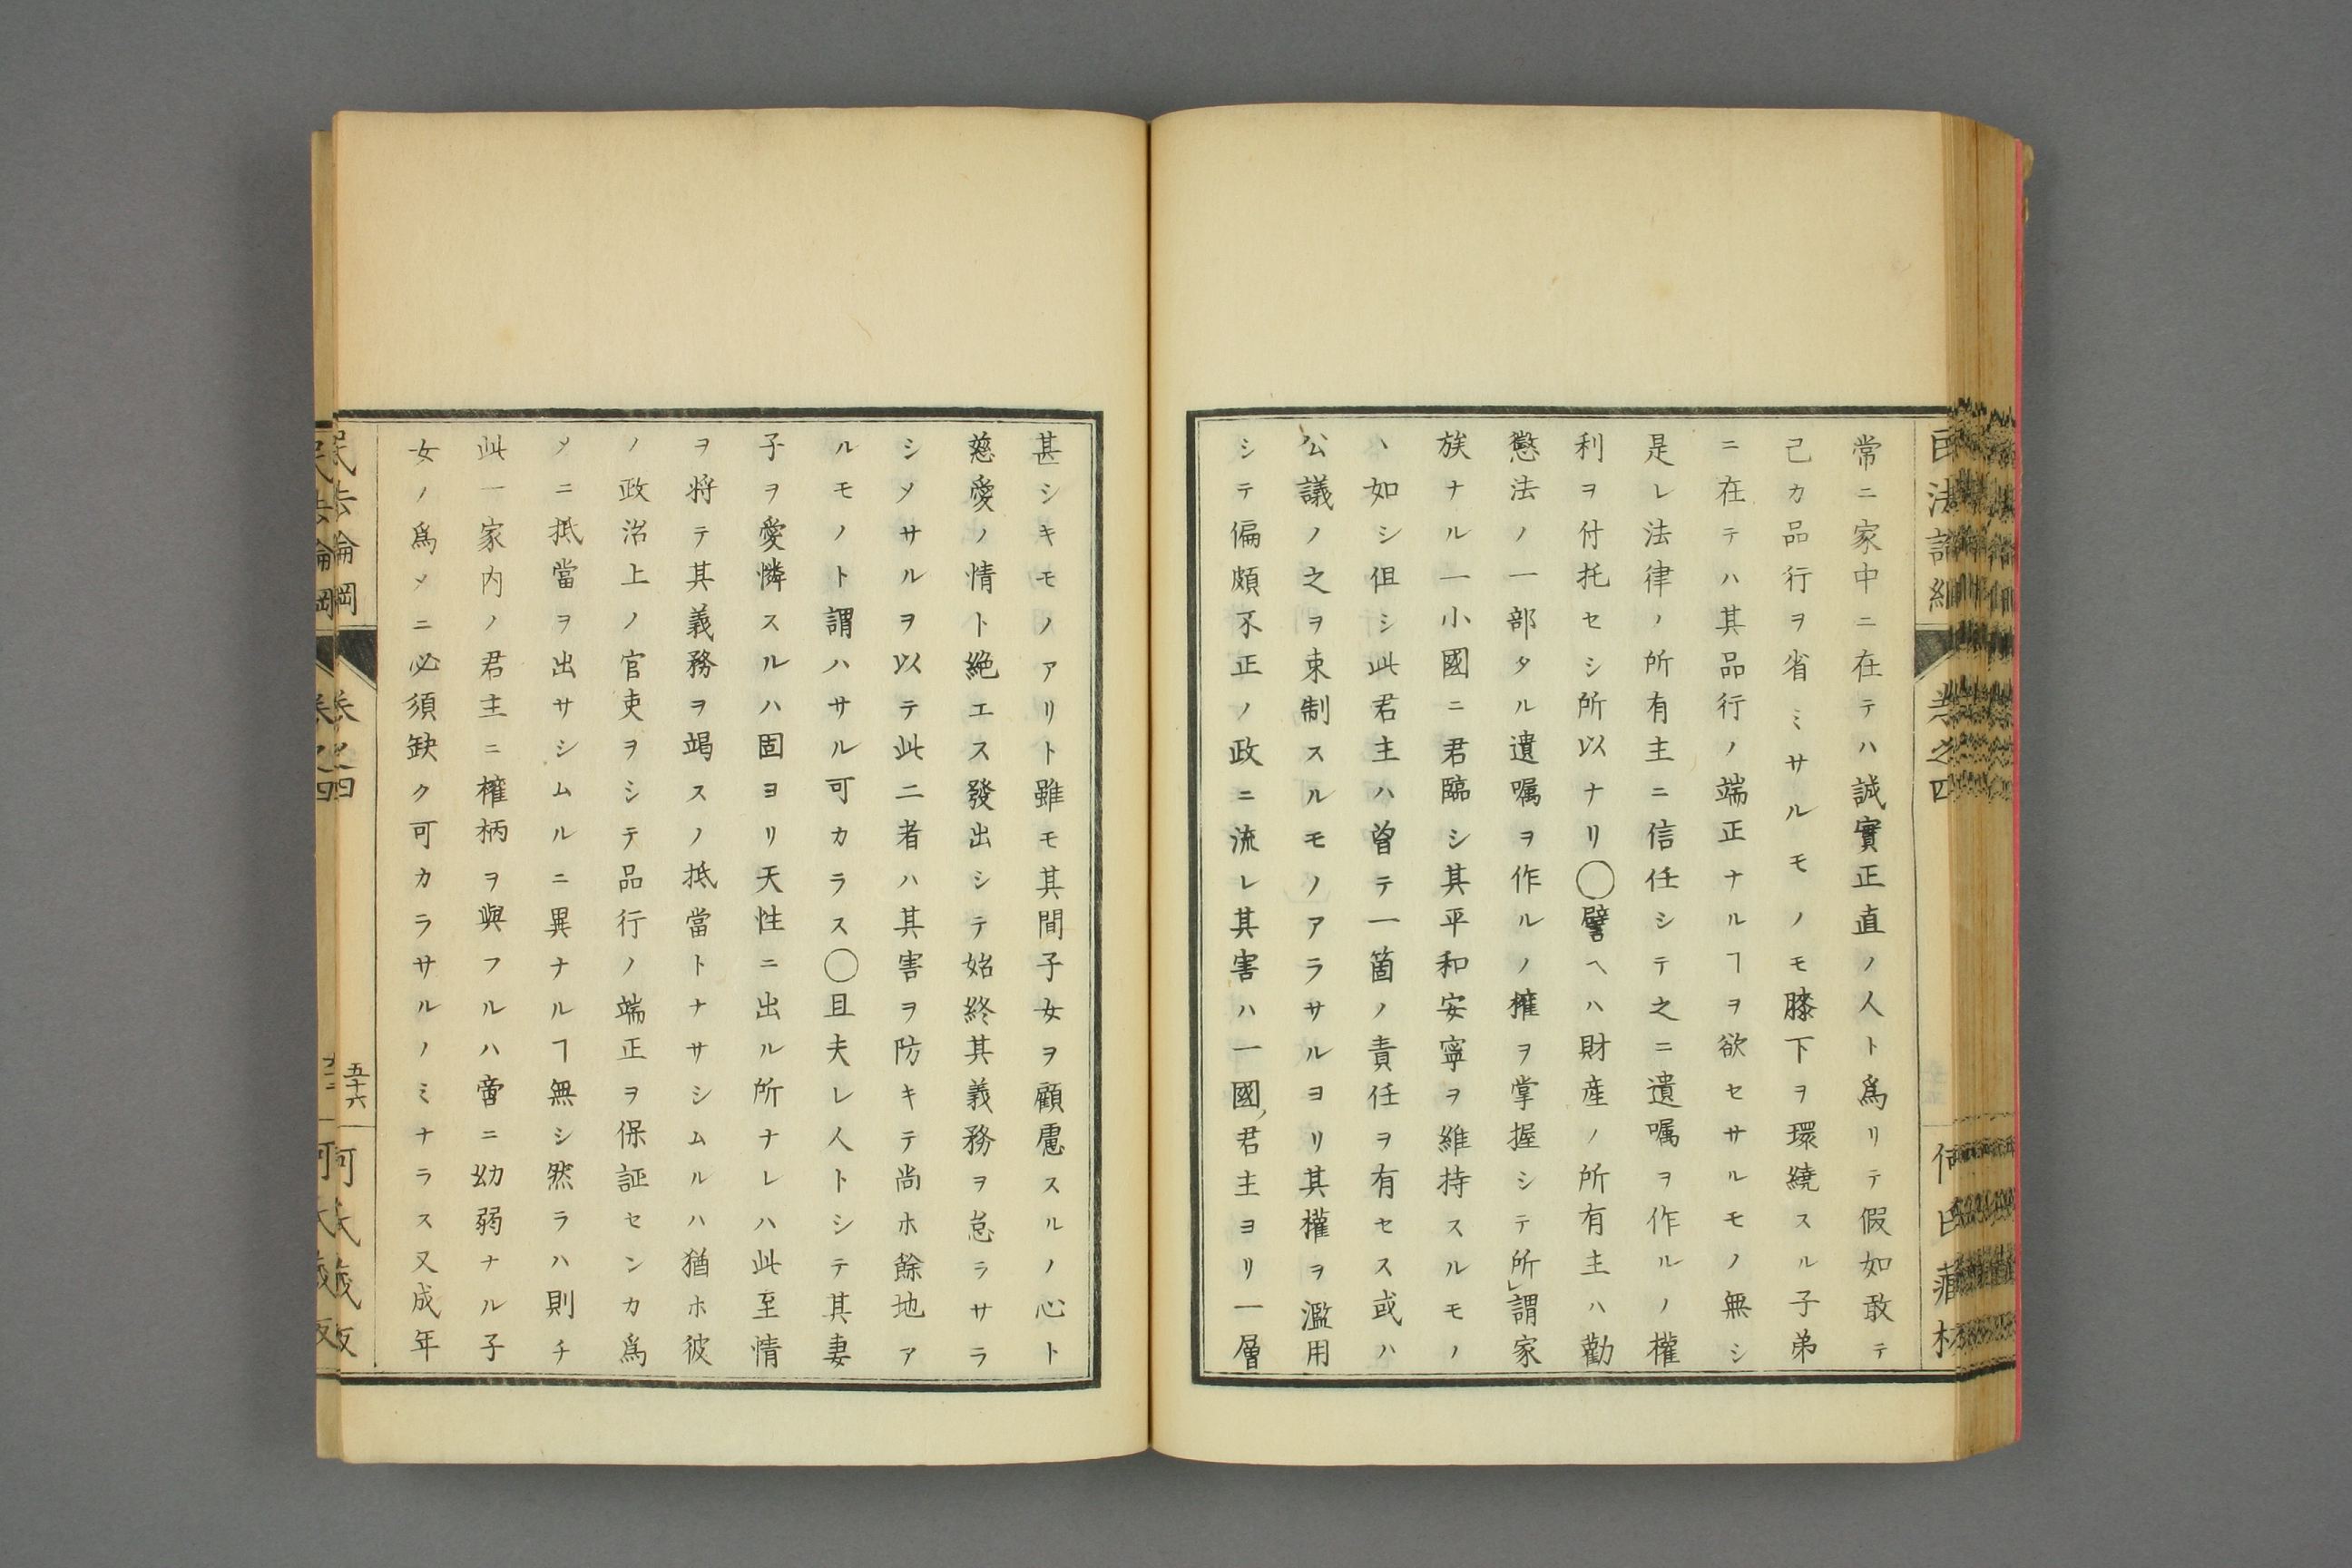 常ニ家中ニ在テハ誠實正直ノ人ト爲リテ假如敢テ
己カ品行ヲ省ミサルモノモ膝下ヲ環繞スル子弟
ニ在テハ其品行ノ端正ナルヿヲ欲セサルモノ無シ
是レ法律ノ所有主ニ信任シテ之ニ遺囑ヲ作ルノ權
利ヲ付托セシ所以ナリ◯譬ヘハ財産ノ所有主ハ勸
懲法ノ一部タル遺囑ヲ作ルノ權ヲ掌握シテ所謂家
族ナル一小國ニ君臨シ其平和安寧ヲ維持スルモノ
ヽ如シ但シ此君主ハ曾テ一箇ノ責任ヲ有セス或ハ
公議ノ之ヲ束制スルモノアラサルヨリ其權ヲ濫用
シテ偏頗不正ノ政ニ流レ其害ハ一國君主ヨリ一層
甚シキモノアリト雖モ其間子女ヲ顧慮スルノ心ト
慈愛ノ情ト絶エス發出シテ始終其義務ヲ怠ラサラ
シメサルヲ以テ此二者ハ其害ヲ防キテ尚ホ餘地ア
ルモノト謂ハサル可カラス◯且夫レ人トシテ其妻
子ヲ愛憐スルハ固ヨリ天性ニ出ル所ナレハ此至情
ヲ将テ其義務ヲ竭スノ抵當トナサシムルハ猶ホ彼
ノ政治上ノ官吏ヲシテ品行ノ端正ヲ保証センカ爲
メニ抵當ヲ出サシムルニ異ナルヿ無シ然ラハ則チ
此一家内ノ君主ニ權柄ヲ與フルハ啻ニ幼弱ナル子
女ノ爲メニ必須缺ク可カラサルノミナラス又成年
五十六